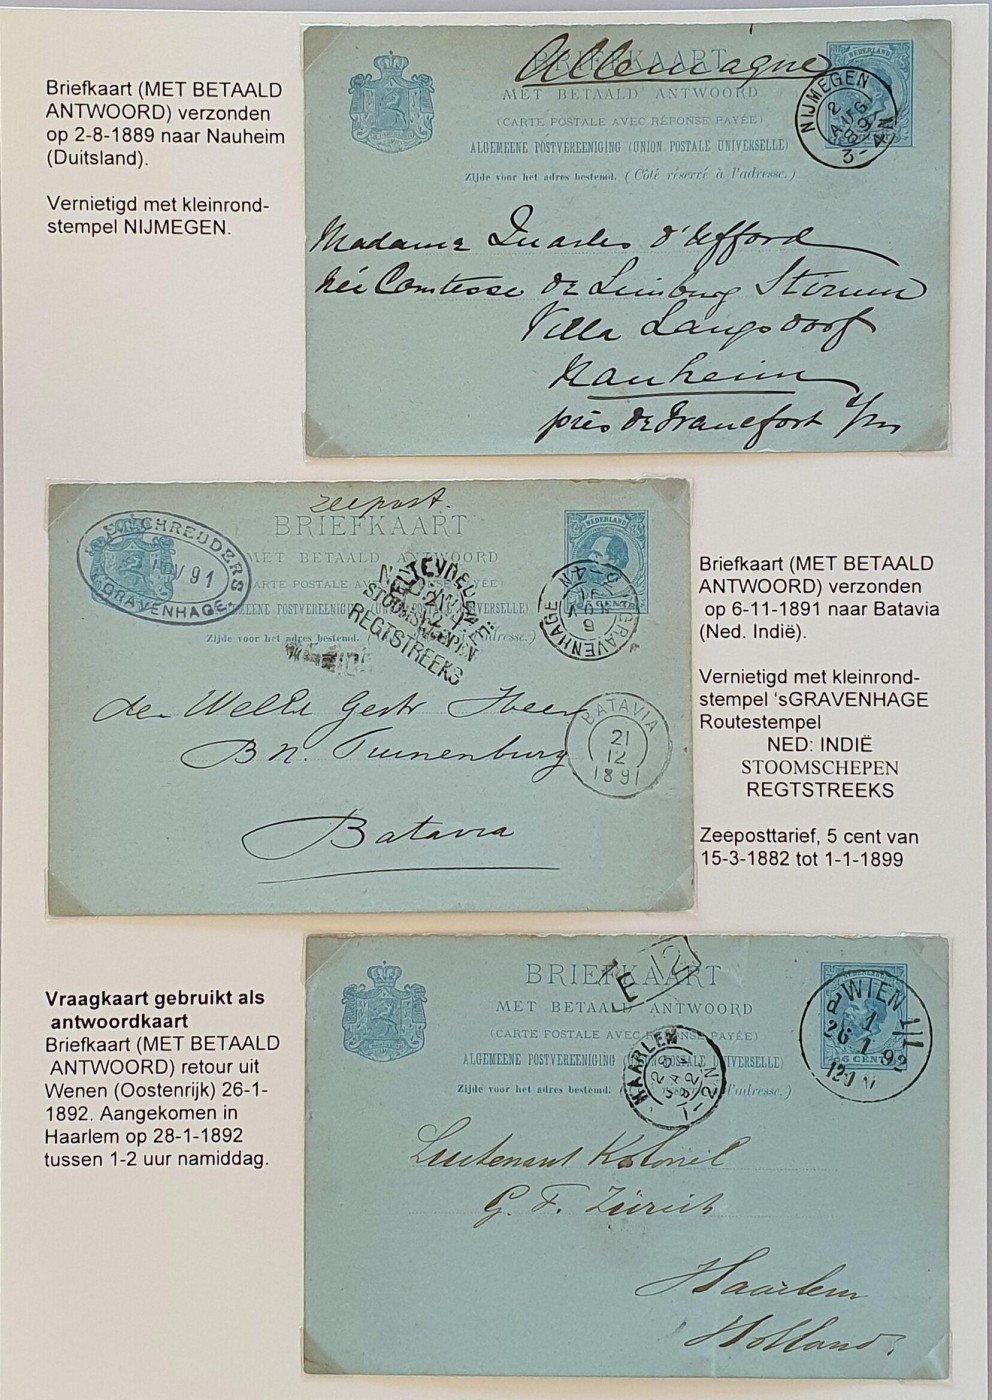 Briefkaart (MET BETAALD
ANTWOORD) verzonden
op 2-8-1889 naar Nauheim
(Duitsland).
Vernietigd met kleinrond-
stempel NIJMEGEN.
Allemagne
BRIEFKAART
MET BETAALD ANTWOORD
(CARTE POSTALE AVEC RÉPONSE PAYÉE)
ALGEMEENE POSTVEREENIGING (UNION POSTALE UNIVERSELLE)
Zijde voor het adres bestemd. (Côté réservé à l'adresse.)
NEDERLAND
NIJMEGEN
2
AUG
89
3-4N
Madame Quarles d'Ufford
née Comtesse de Limburg Stirum
Villa Langsdorf
Nauheim
près de Francfort s/m
zeepost.
BRIEFKAART
MET BETAALD ANTWOORD
CARTE POSTALE
POSTVEREENIGING
Zijde voor het adres bestemd.
NEDERLAND
SCHREUDERS
NOV 91
GRAVENHAGE
WELTEVREDEN
STOOMSCHEPEN
REGTSTREEKS
GRAVENHAGE
BATAVIA
21
12
1891
den WelEd Gestr Heer
Bn. Tuinenburg
Batavia
Briefkaart (MET BETAALD
ANTWOORD) verzonden
op 6-11-1891 naar Batavia
(Ned. Indië).
Vernietigd met kleinrond-
stempel 'sGRAVENHAGE
Routestempel
NED: INDIË
STOOMSCHEPEN
REGTSTREEKS
Zeeposttarief, 5 cent van
15-3-1882 tot 1-1-1899
Vraagkaart gebruikt als
antwoordkaart
Briefkaart (MET BETAALD
ANTWOORD) retour uit
Wenen (Oostenrijk) 26-1-
1892. Aangekomen in
Haarlem op 28-1-1892
tussen 1-2 uur namiddag.
BRIEFKAART
MET BETAALD ANTWOORD
(CARTE POSTALE AVEC RÉPONSE PAYÉE)
ALGEMEENE POSTVEREENIGING (UNION POSTALE UNIVERSELLE)
Zijde voor het adres bestemd. (Côté réservé à l'adresse.)
12
HAARLEM
1-2N
WIEN
1
26 1 92
5 CENT
Luitenant Kolonel
G. F. Zürich
Haarlem
Holland.